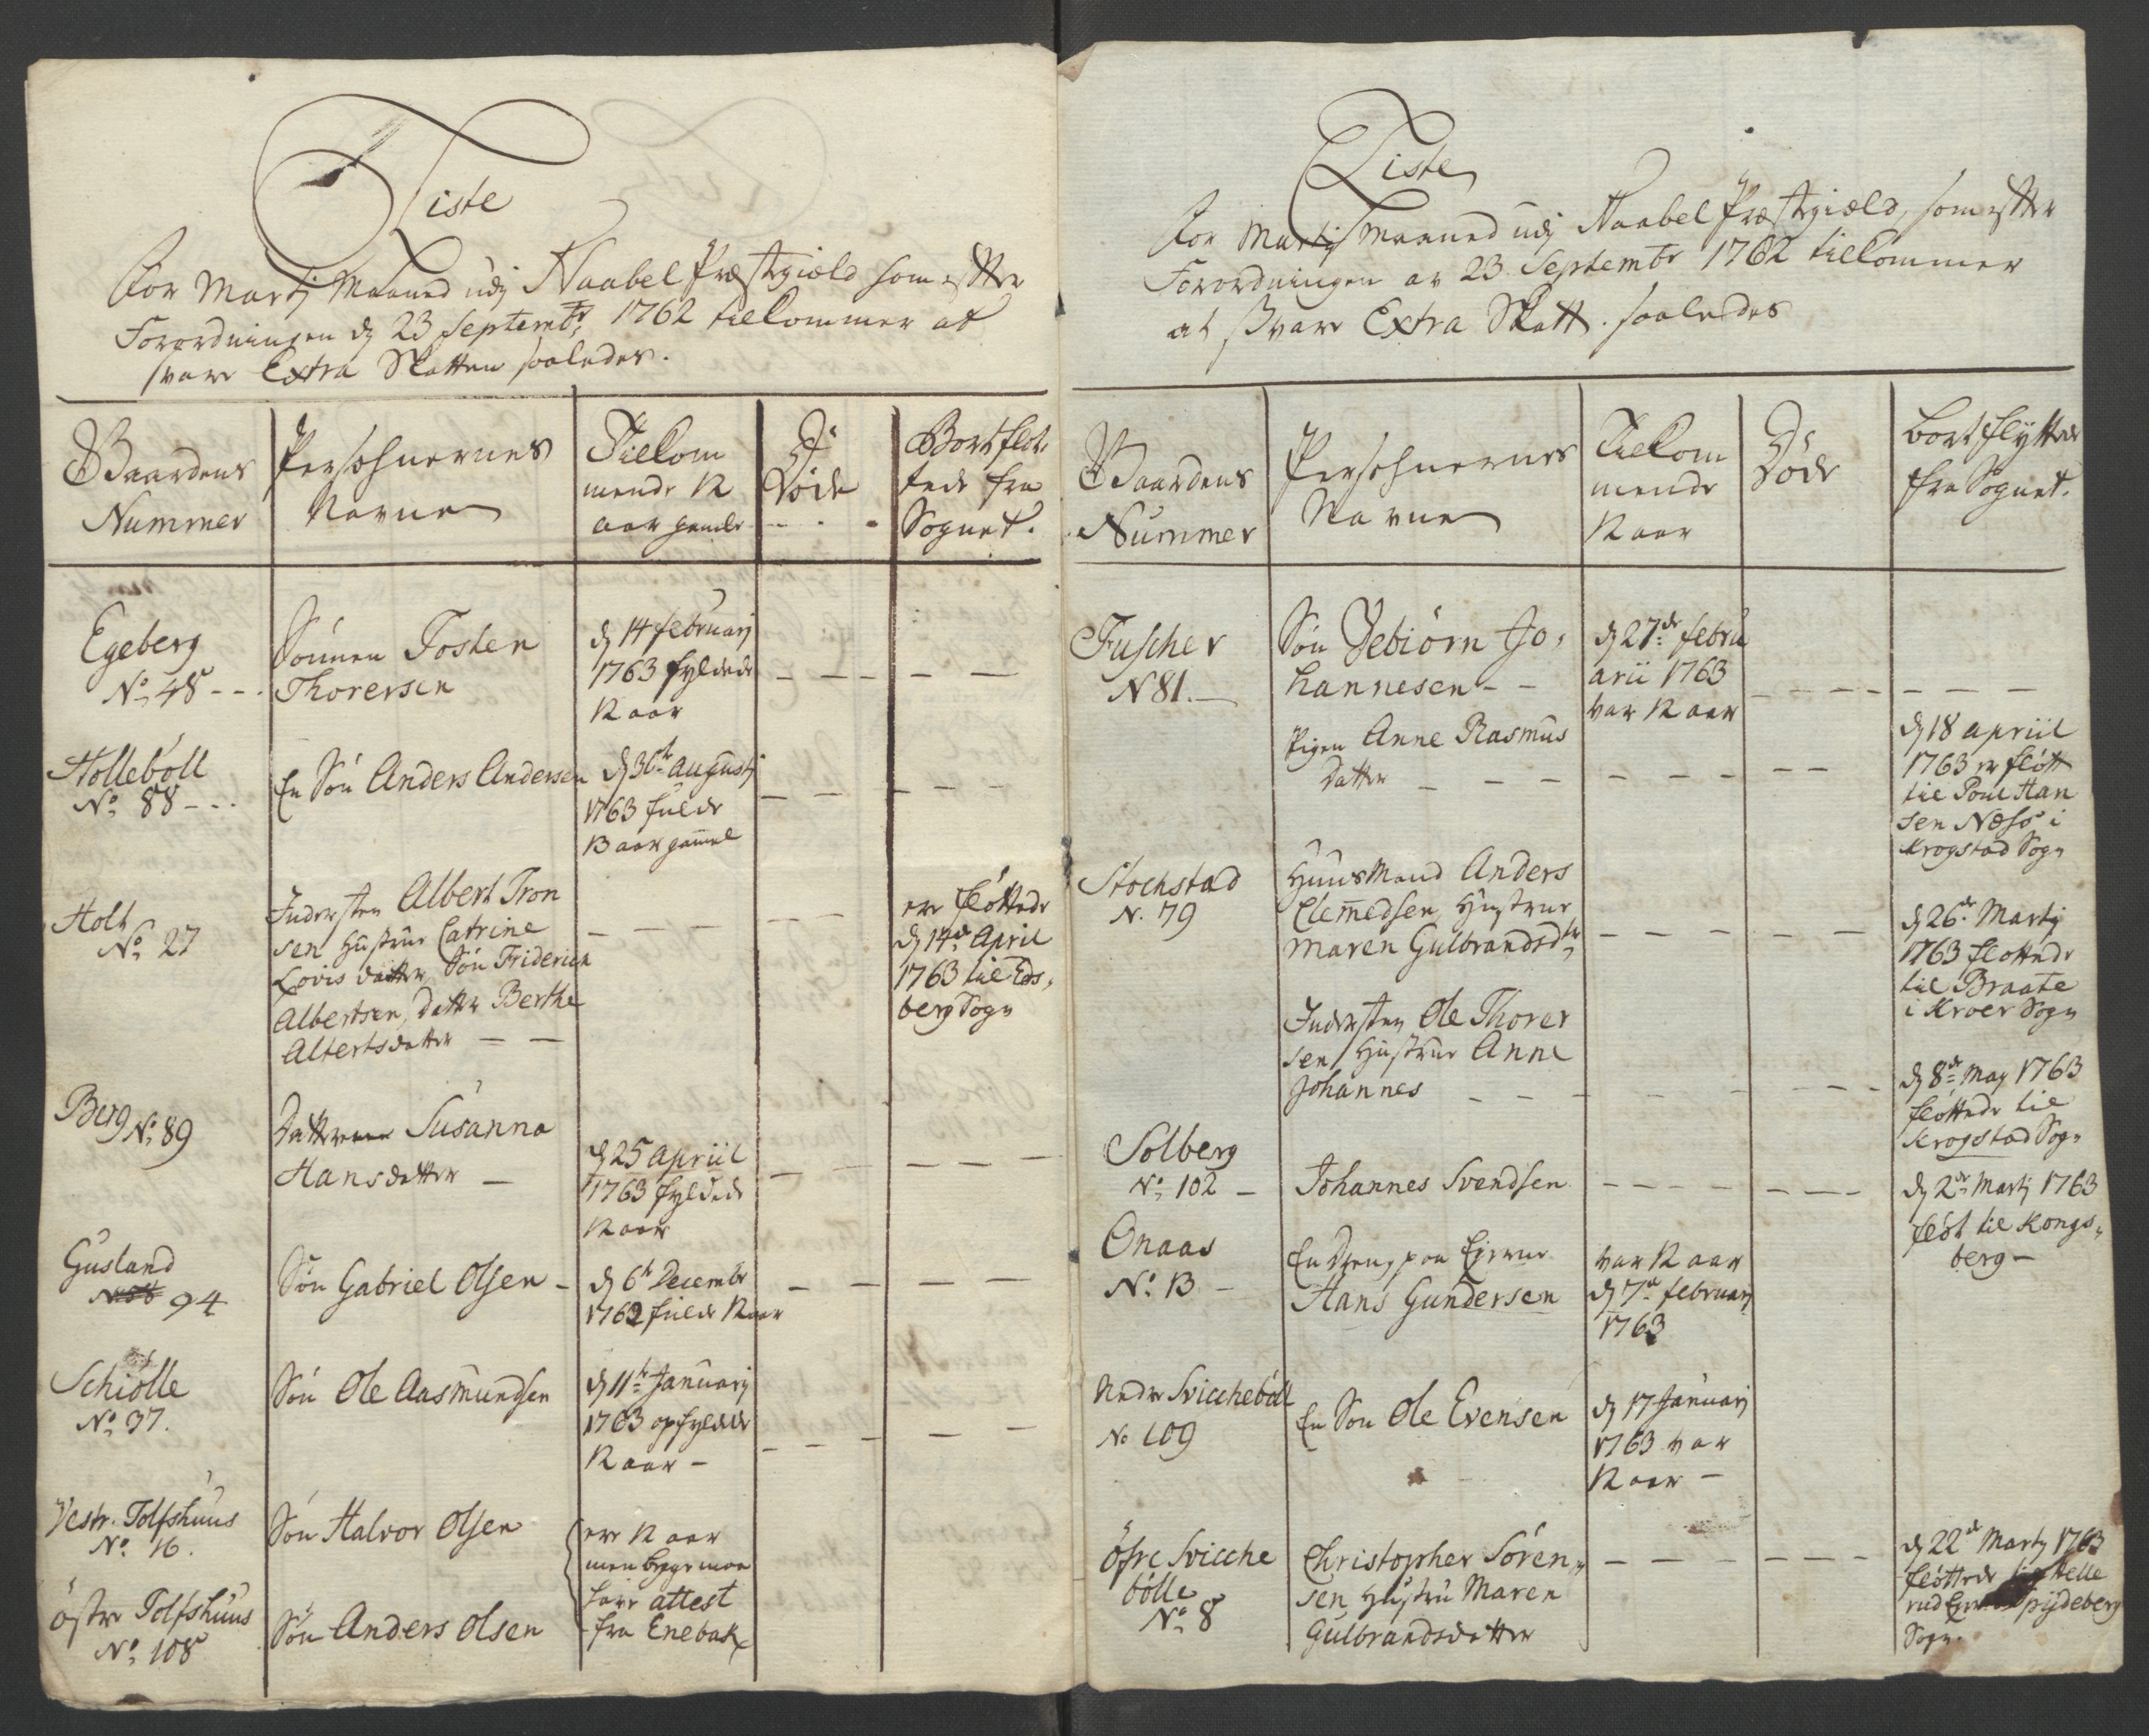 Liste
for Martj Maaned udj Haabel Præstegield som efter
Forordningen dj 23 Septembr 1762 tilkommer at
svare Extra Skatten saaledes.
Gaardens
Nummer
Persohnernes
Navne
Tilkom
mende 12
aar gamle
Døde
Bortfløt
tede fra
Sognet.
Egeberg
No 48
Sønnen Tosten
Thorersen
dj 14 februarj
1763 fyldede
12 aar
Hollebøll
No 88
En Søn Anders Andersen
dj 30te Augustj
1763 fulde
13 aar gamel
Holt
No 27
Indersten Albert Tron
sen Hustrue Catrine
Lovis datter, Søn Friderich
Albertsen, datter Berthe
Albertsdatter
ere fløttede
dj 14de April
1763 til Eds,
berg Sogn
Berg No 89
Datteren Susanna
Hansdatter
dj 25 Apriil
1763 fyldede
12 aar
Gusland
94
Søn Gabriel Olsen
dj 6te Decembr
1762 fulde 12 aar
Schiølle
No 37.
Søn Ole Aasmundsen
dj 11te Januarj
1763 opfyldede
12 aar
Vestr. Tolfshuus
No 16.
Søn Halvor Olsen
ere 12 aar
men begge maa
have attest
fra Enebak
østre Tolfshuus
No 108
Søn Anders Olsen
Liste
for Martj Maaned udj Haabel Præstegield, som efter
Forordningen av 23 Septembr 1762 tilkommer
at svare Extra Skatt. saaledes
Gaardens
Nummer
Persohnernes
Navne
Tilkom
mende
12 aar
Døde
bortflyttede
fra Sognet.
Fuscher
N 81.
Søn Vebiørn Jo,
hannesen
dj 27de febru
arii 1763
var 12 aar
Pigen Anne Rasmus
datter
dj 18 apriil
1763 er fløtt
til Poul Han
sen Næss i
Krogstad Sogn
Stochstad
N. 79
Huusmand Anders
Clemedsen, Hustrue
Maren Gulbrandsdtr
dj 26de Martj
1763 fløttede
til Braate
i Kroer Sogn
Indersten Ole Thorer
sen, Hustrue Anne
Johannes
dj 8de May 1763
fløttede til
Krogstad Sogn
Solberg
No 102
Johannes Svendsen
dj 2de Martj 1763
fløt til Kongs,
berg
Onaas
No 13
En Dreng paa Ejerne
Hans Gundersen
var 12 aar
dj 7de februarj
1763
Nedre Svicchebøll
No 109
En Søn Ole Evensen
dj 17 Januarj
1763 var
12 aar
øfre Svicche
bølle
No 8
Christopher Søren,,
sen Hustru Maren
Gulbrandsdatter
dj 22de Martj 1763
fløttede til Helle
rud Spydeberg
Sogn.